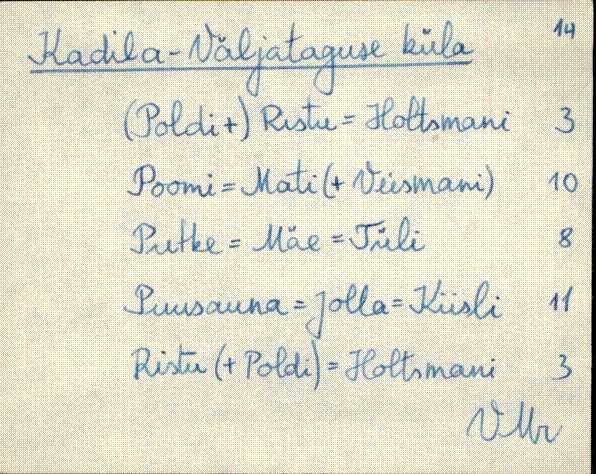 14
Kadila-Väljataguse küla
(Poldi+) Ristu = Holtsmani 3
Poomi = Mati (+ Viismani) 10
Putke = Mäe = Tüli 8
Puusauna = Jolla = Kiisli 11
Ristu (+ Poldi) = Holtsmani 3
VMr